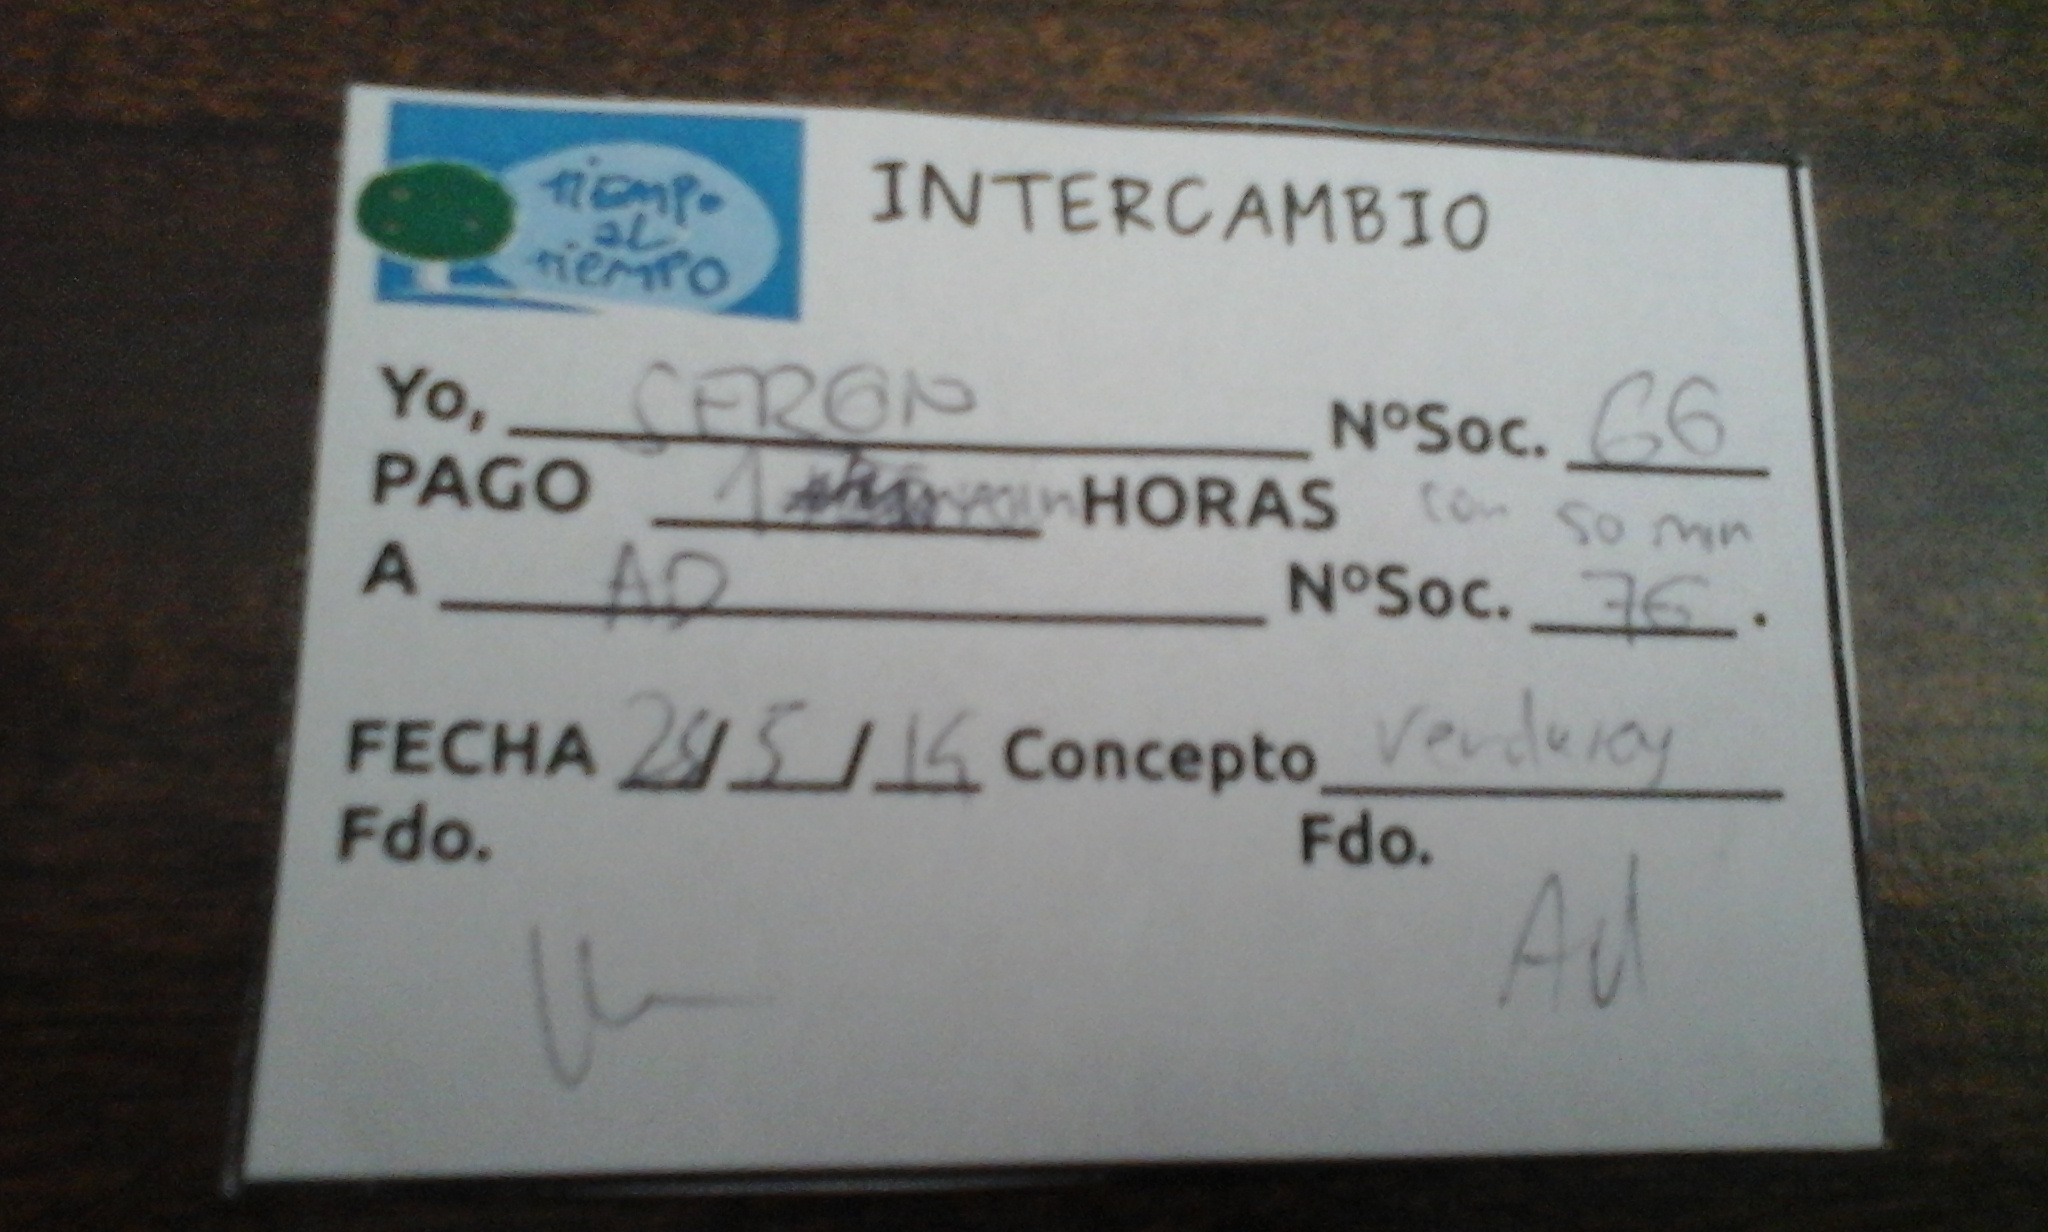 tiempo
al
tiempo
INTERCAMBIO
Yo, SERGN NºSoc. 66
PAGO 1 min HORAS con 50 min
A AD NºSoc. 76.
FECHA 28/5/15 Concepto Verduras
Fdo. Fdo.
Ad